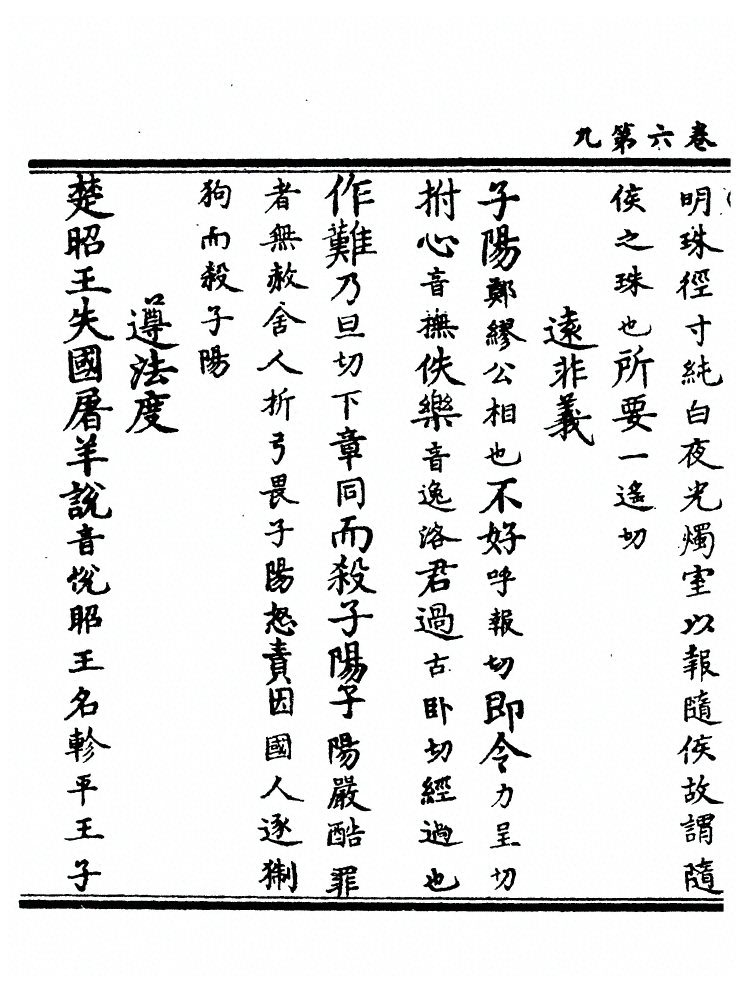 卷六第九
明珠徑寸純白夜光燭室以報隨侯故謂隨
侯之珠也所要一遙切
遠非義
子陽鄭繆公相也不好呼報切即令力呈切
拊心音撫佚樂音逸洛君過古卧切經過也
作難乃旦切下章同而殺子陽子陽嚴酷罪
者無赦舍人折弓畏子陽怒責因國人逐猘
狗而殺子陽
遵法度
楚昭王失國屠羊說音悅昭王名軫平王子